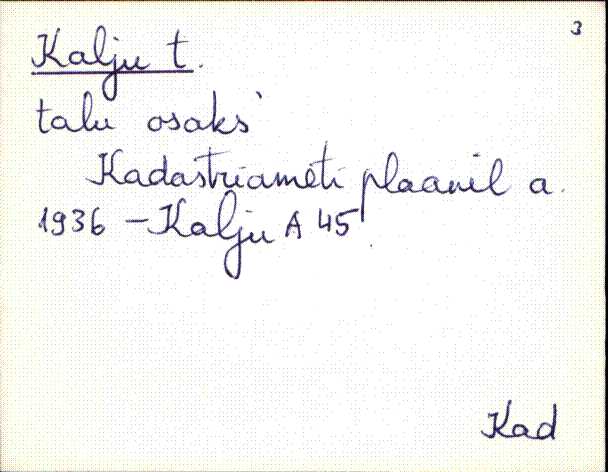 3
Kalju t.
talu osaks`
Kadastriameti plaanil a.
1936 - Kalju A 45
Kad